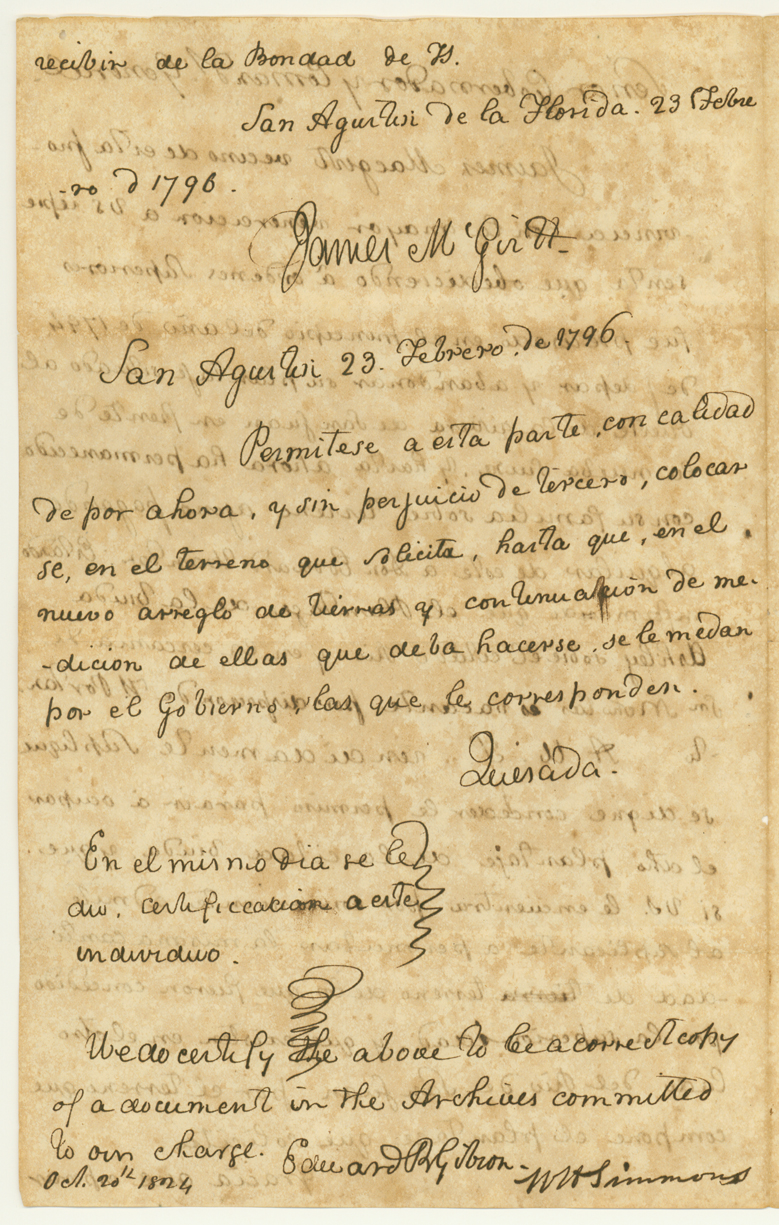 recibir de la Bondad de VS.
San Agustin de la Florida. 23 Febre
-ro d 1796.
James McGirtt
San Agustin 23. Febrero. de 1796.
Permitese a esta parte, con calidad
de por ahora, y sin perjuicio de tercero, colocar
se, en el terreno que solicita, hasta que, en el
nuevo arreglo de tierras y continuacion de me-
-dicion de ellas que deba hacerse, se le medan
por el Gobierno, las que le corresponden.
Quesada.
En el mismo dia se le
dio, certificcacion a este
individuo.
We do certify the above to be a correct copy
of a document in the Archives committed
to our charge. Edward R Gibson.
Oct. 20th 1824 WH Simmons